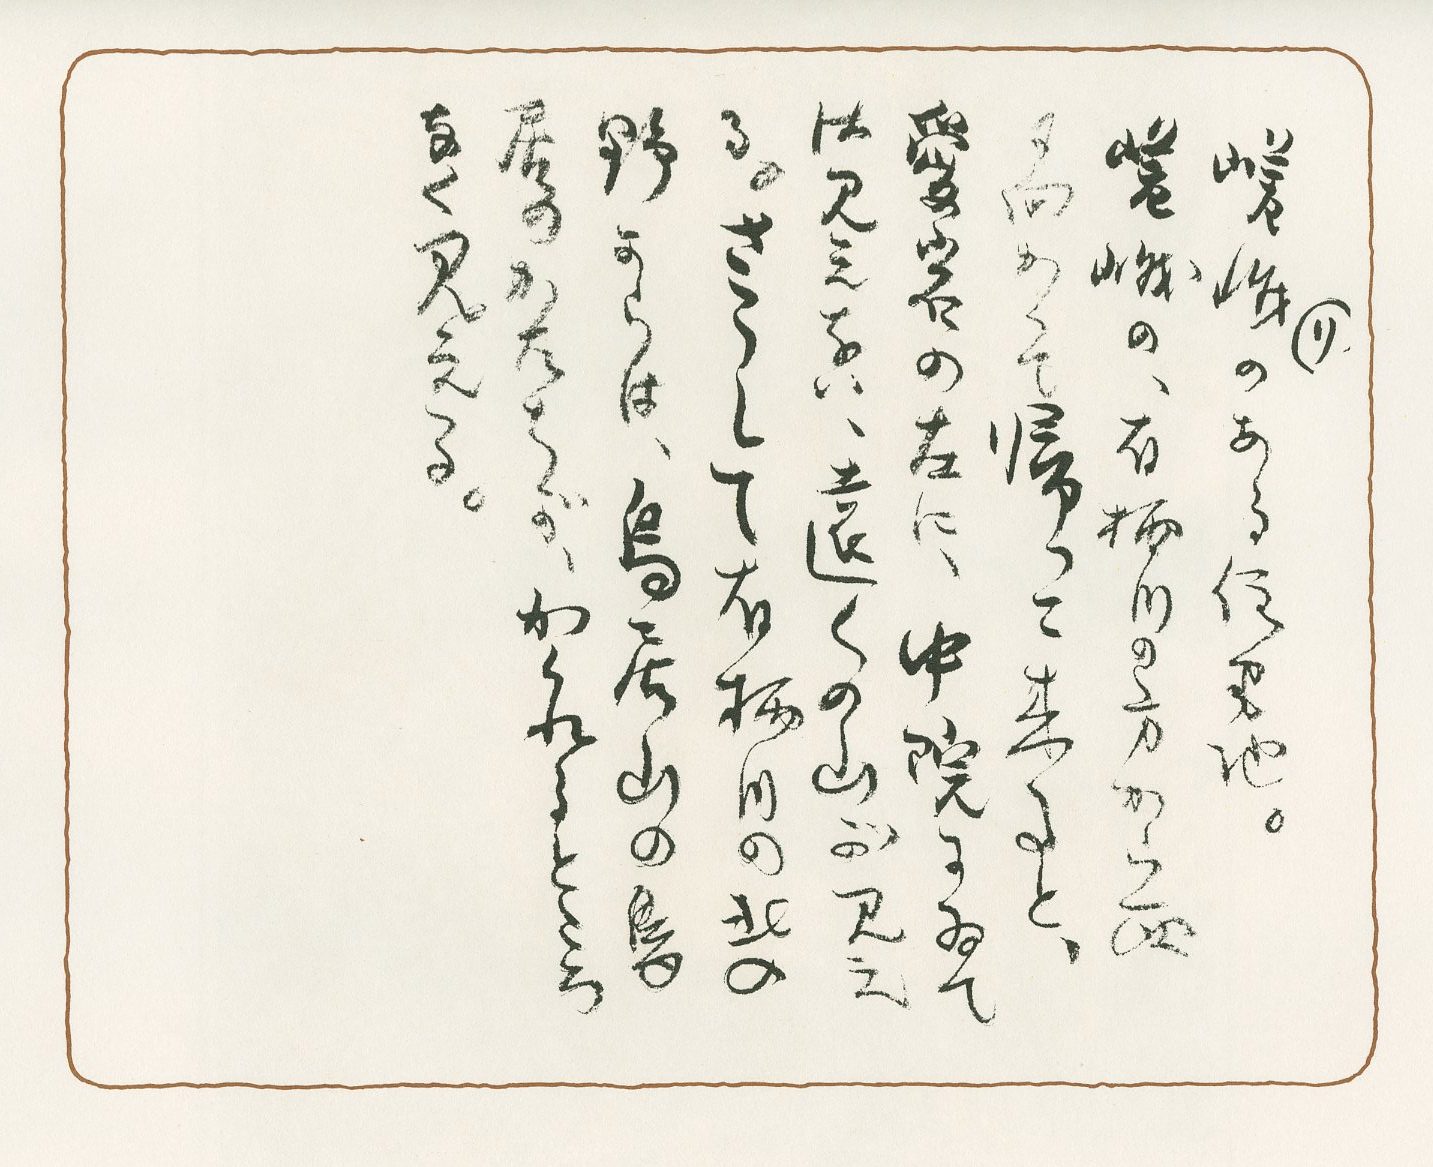 嵯峨のある住居地。
嵯峨の、有栖川の方から西
に向かつて帰つて来ると、
愛宕の左に、中院まゐで
は見えない、遠くの山が見え
る。さうして有栖川の北の
野からは、鳥居山の鳥
居のかたちが、かくれるところ
なく見える。